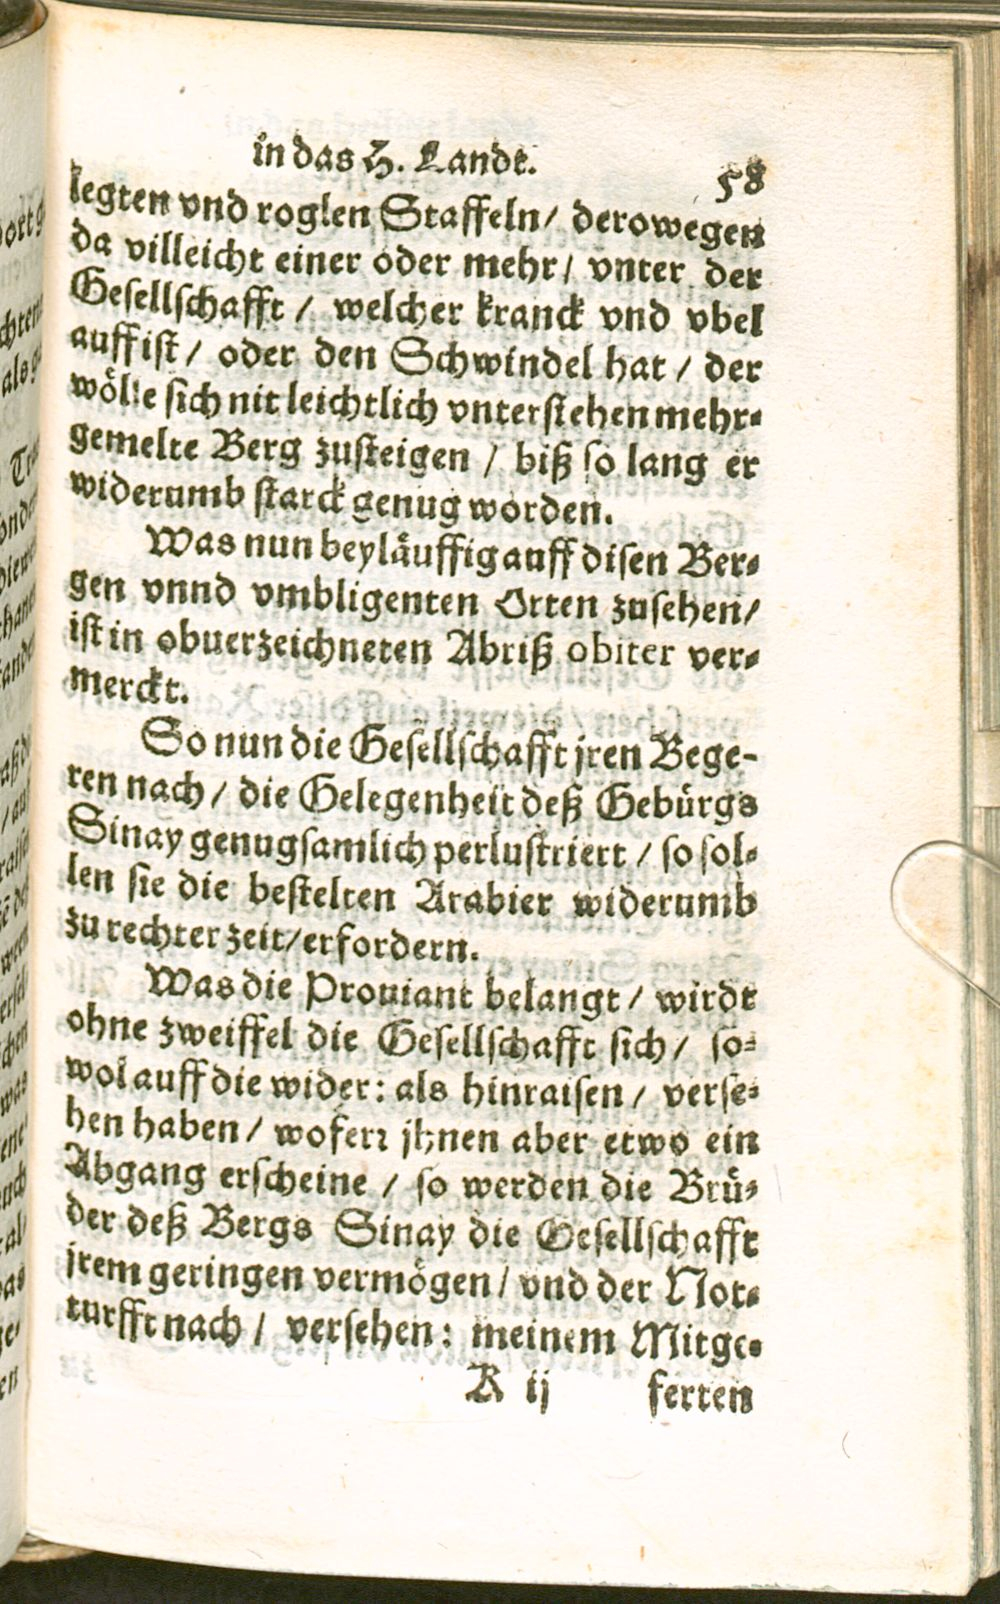 in das H. Landt. 58
legten vnd roglen Staffeln/ derowegen
da villeicht einer oder mehr/ vnter der
Gesellschafft / welcher kranck vnd vbel
auff ist/ oder den Schwindel hat / der
wölle sich nit leichtlich vnterstehen mehr-
gemelte Berg zusteigen / biß so lang er
widerumb starck genug worden.
Was nun beyläuffig auff disen Ber-
gen vnnd vmbligenten Orten zusehen/
ist in obuerzeichneten Abriß obiter ver-
merckt.
So nun die Gesellschafft jren Bege-
ren nach / die Gelegenheit deß Gebürgs
Sinay genugsamlich perlustriert / so sol-
len sie die bestelten Arabier widerumb
zu rechter zeit/erfordern.
Was die Prouiant belangt / wirdt
ohne zweiffel die Gesellschafft sich / so-
wol auff die wider: als hinraisen / verse-
hen haben / wofern jhnen aber etwo ein
Abgang erscheine / so werden die Brü-
der deß Bergs Sinay die Gesellschafft
jrem geringen vermögen / vnd der Not-
turfft nach / versehen: meinem Mitge-
K ij ferten